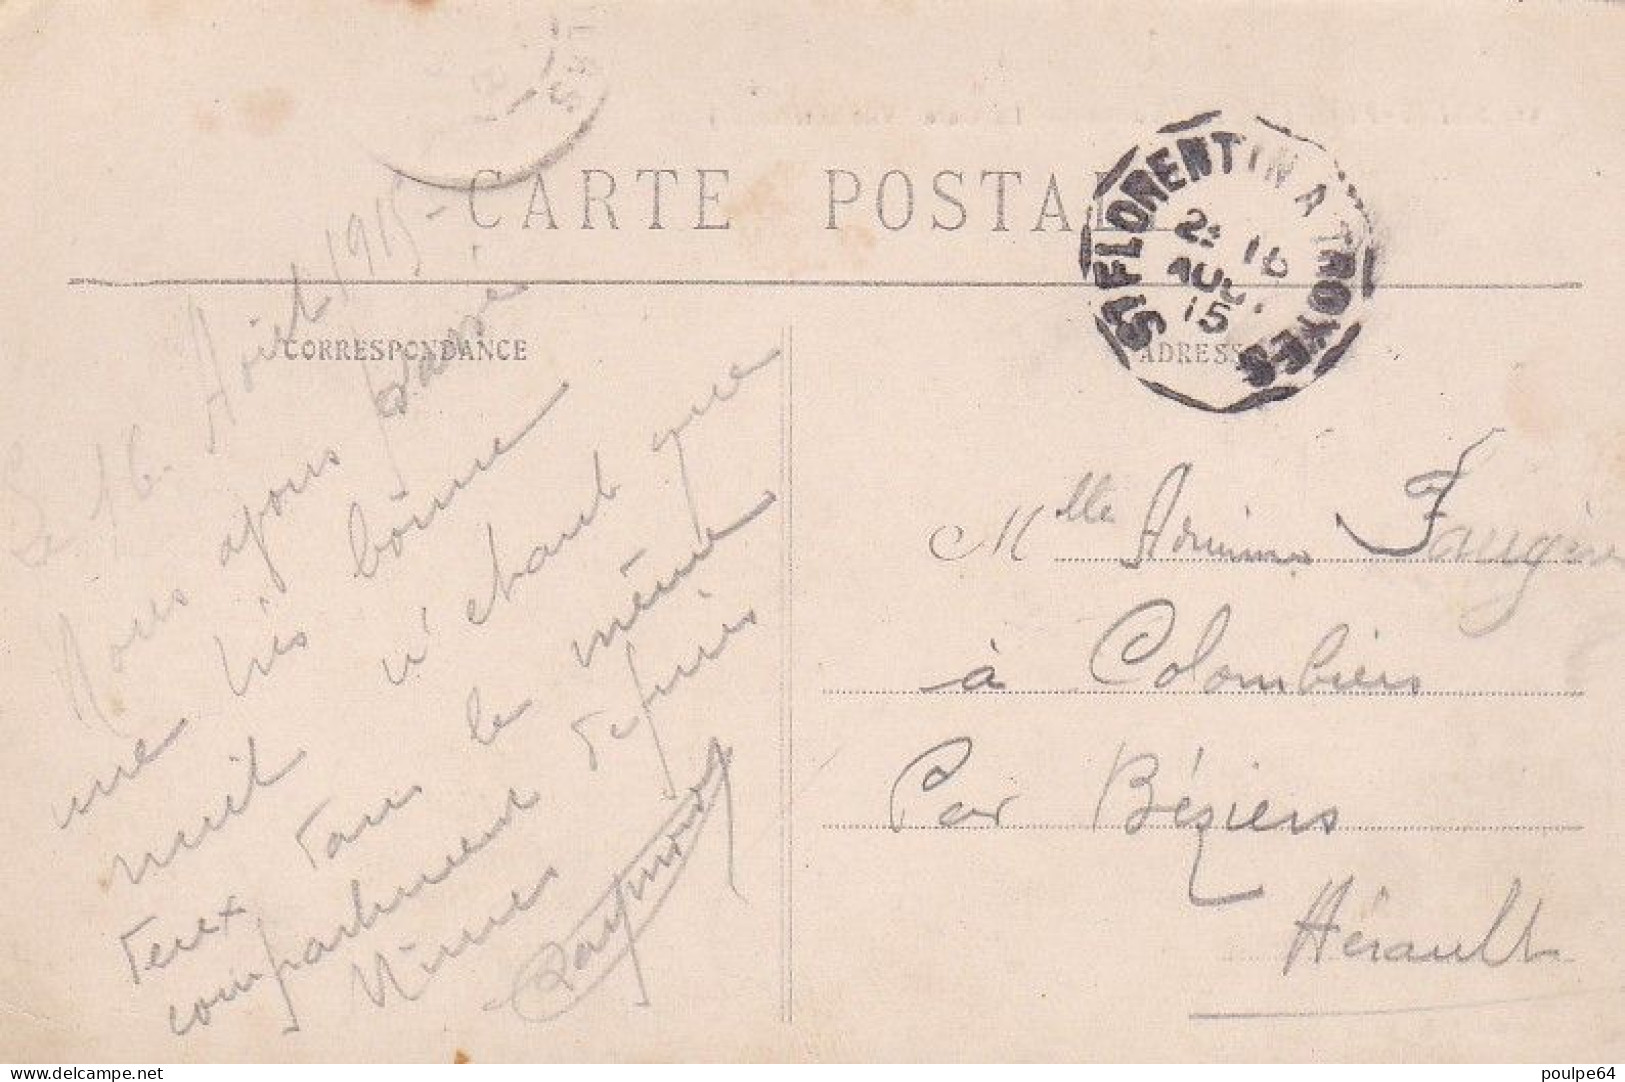 CARTE POSTALE
ST FLORENTIN A TROYES
16
AOUT
15
CORRESPONDANCE
ADRESSE
Le 16 Août 1915-
Nous avons passé
une très bonne
nuit n'étant que
deux dans le même
compartiment depuis
Nîmes
Raymond
Mlle
à Colombiers
Par Béziers
Hérault
delcampe.net
poulpe64